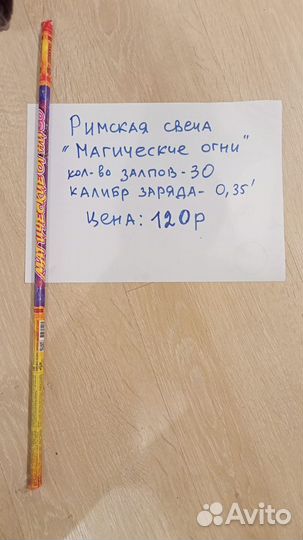 МАГИЧЕСКИЕ ОГНИ
Римская свеча
"Магические огни"
кол-во залпов - 30
калибр заряда - 0,35'
Цена: 120р
Avito